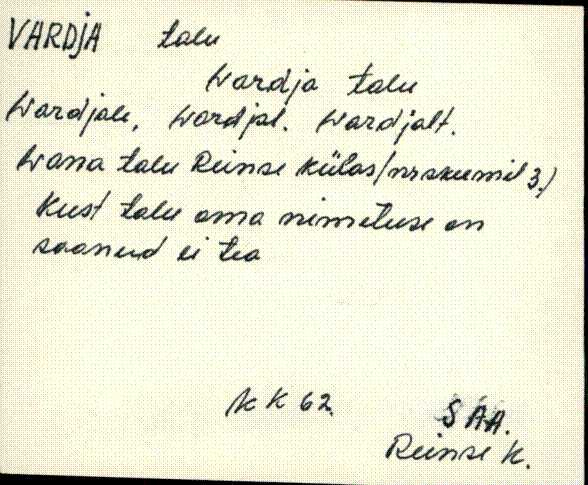 VARDJA talu
Wardja talu
Wardjale, Wardjal. Wardjalt.
Wana talu Reinse külas (nr skeemil 3.)
Kust talu oma nimetuse on
saanud ei tea
KK 62.
SAA.
Reinse k.